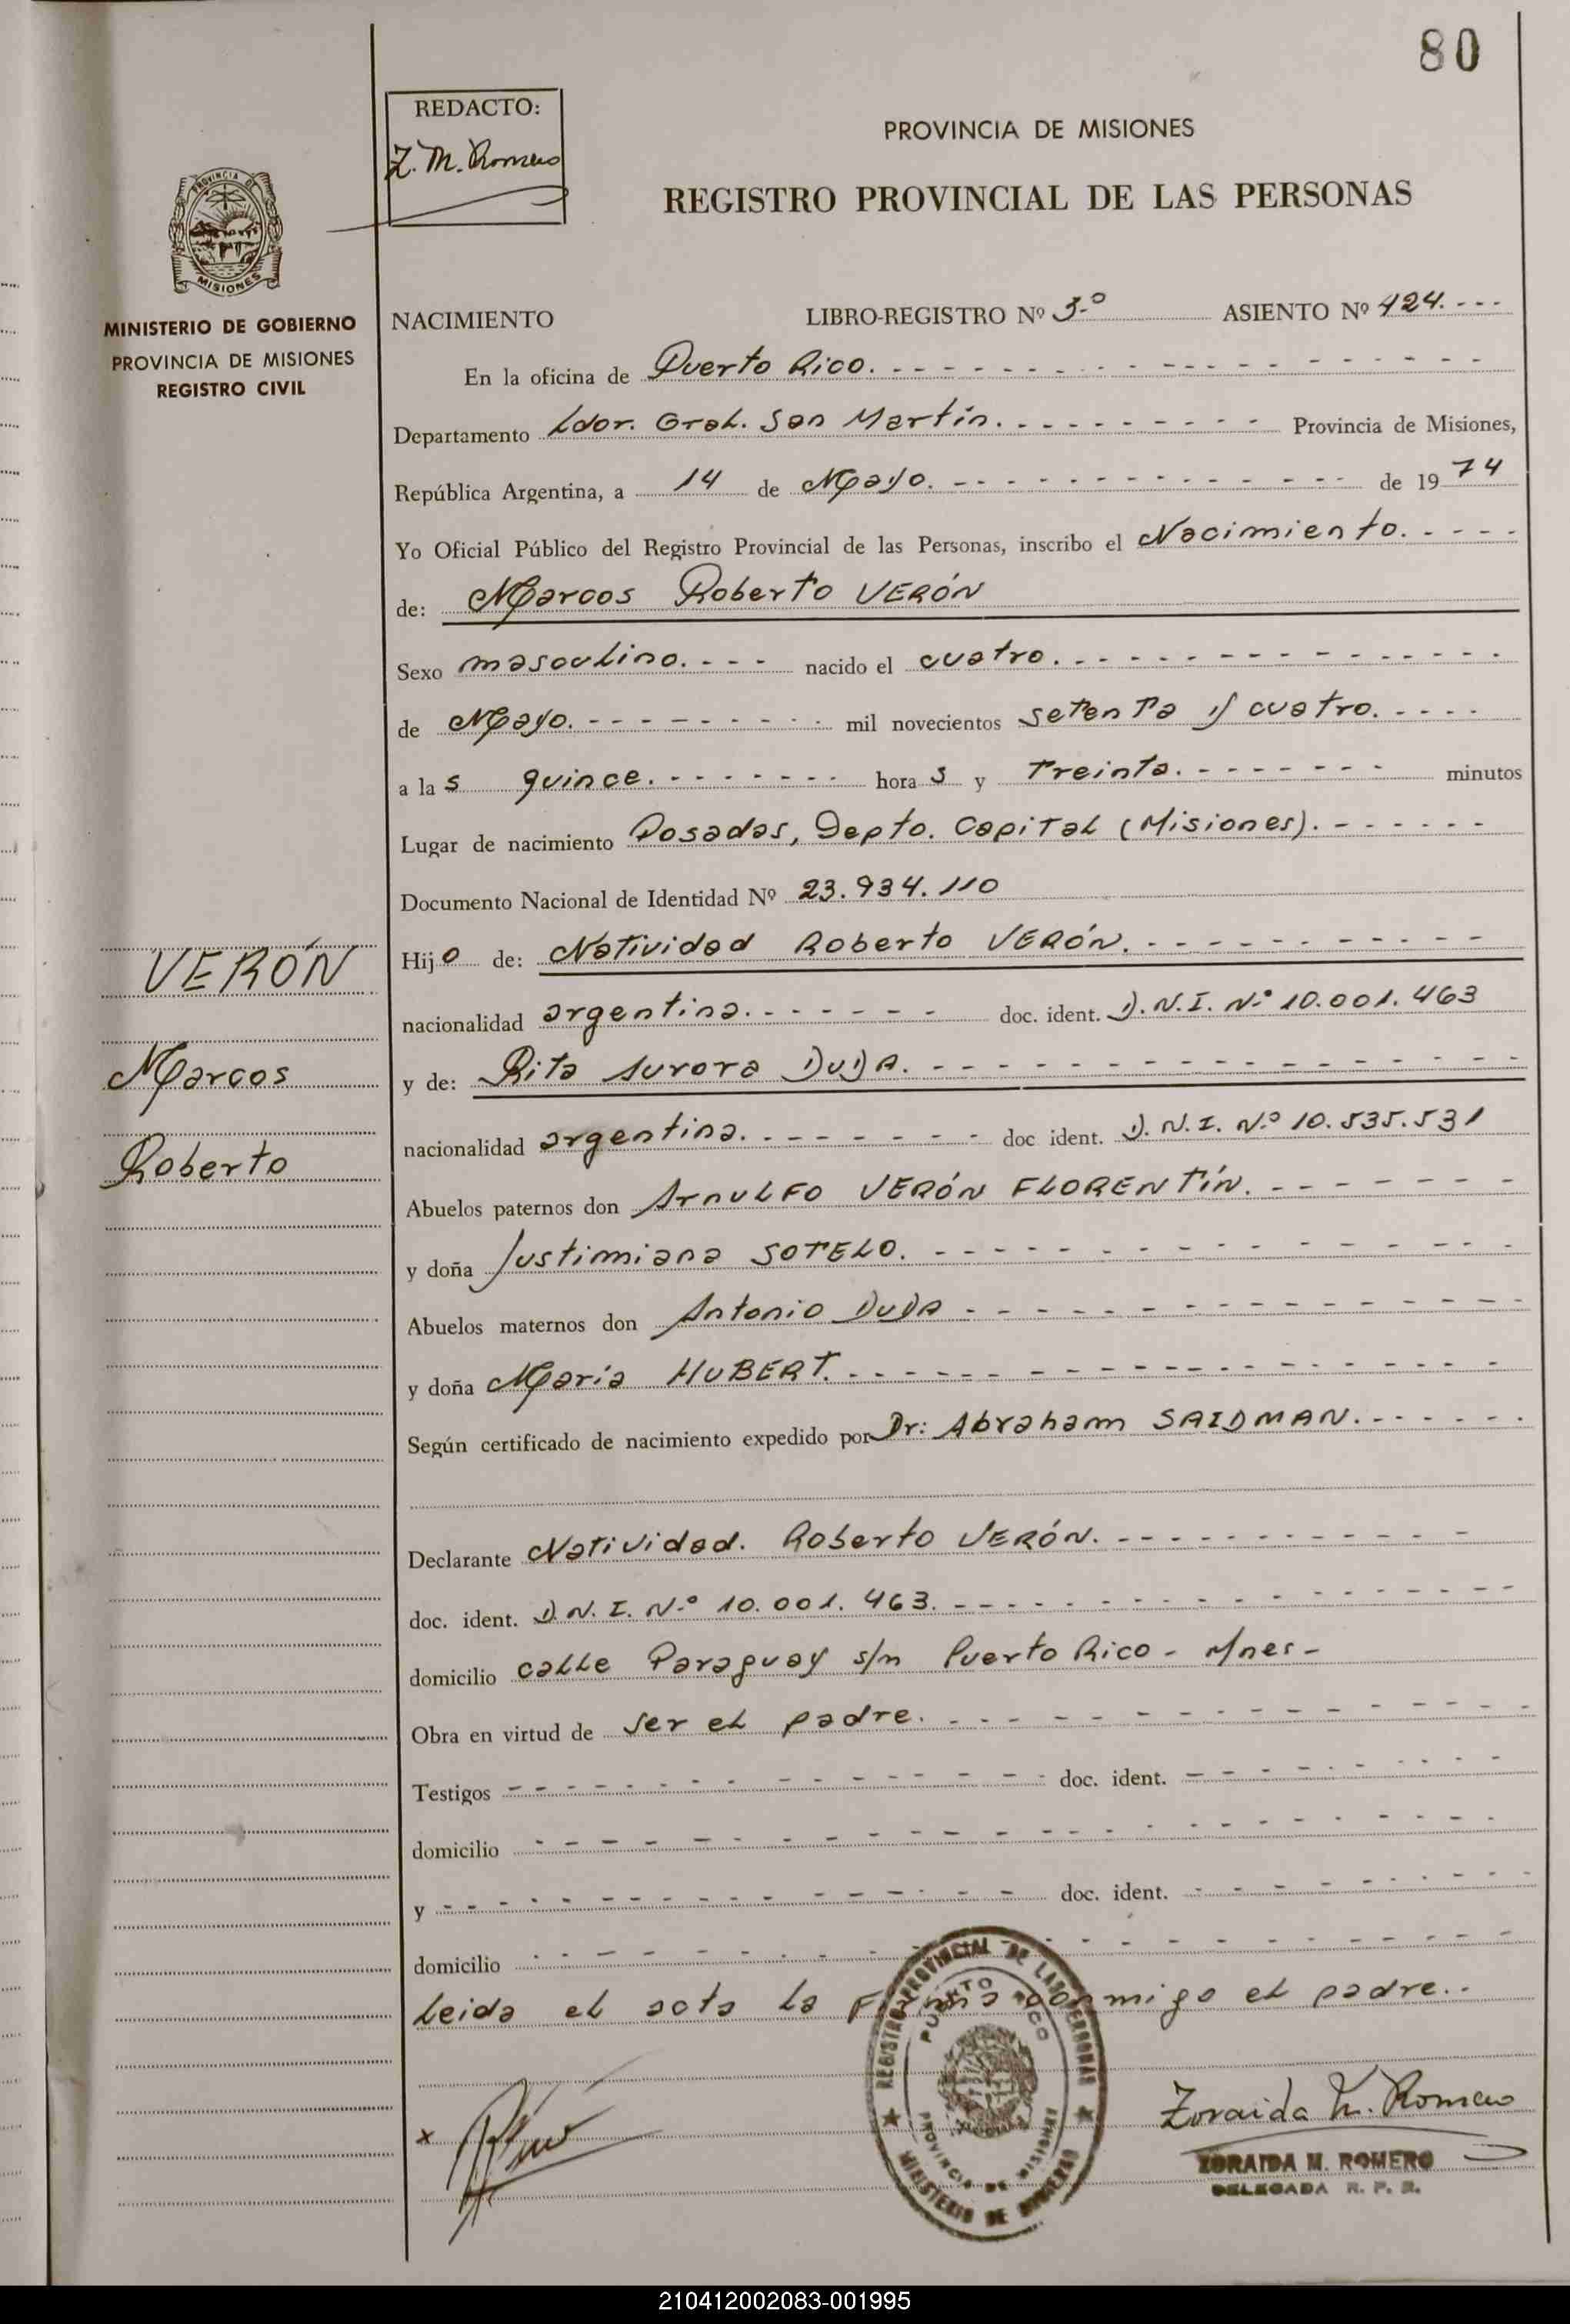 80
REDACTO:
Z. M. Romero
PROVINCIA DE MISIONES
REGISTRO PROVINCIAL DE LAS PERSONAS
PROVINCIA DE
MISIONES
MINISTERIO DE GOBIERNO
PROVINCIA DE MISIONES
REGISTRO CIVIL
NACIMIENTO LIBRO-REGISTRO Nº 3-º ASIENTO Nº 424. - - -
En la oficina de Puerto Rico.
Departamento Ldor. Gral. San Martín. Provincia de Misiones,
República Argentina, a 14 de Mayo. de 1974
Yo Oficial Público del Registro Provincial de las Personas, inscribo el Nacimiento.
de: Marcos Roberto VERÓN
Sexo masculino. nacido el cuatro.
de Mayo. mil novecientos setenta y cuatro.
a las quince. horas y Treinta. minutos
Lugar de nacimiento Posadas, Depto. Capital (Misiones).
Documento Nacional de Identidad Nº 23.934.110
Hijo de: Natividad Roberto VERÓN.
nacionalidad argentina. doc. ident. D.N.I. N.º 10.001.463
y de: Rita Aurora DUDA.
nacionalidad argentina. doc ident. D.N.I. N.º 10.535.531
Abuelos paternos don Arnulfo VERÓN FLORENTÍN.
y doña Justimiana SOTELO.
Abuelos maternos don Antonio DUDA
y doña María HUBERT.
Según certificado de nacimiento expedido por Dr: Abraham SAIDMAN.
Declarante Natividad. Roberto VERÓN.
doc. ident. D.N.I. N.º 10.001.463.
domicilio calle Paraguay s/n Puerto Rico - Mnes-
Obra en virtud de ser el padre.
Testigos doc. ident.
domicilio
y doc. ident.
domicilio
Leida el acta la Firma conmigo el padre..
VERÓN
Marcos
Roberto
x
REGISTRO PROVINCIAL DE LAS PERSONAS
PUERTO RICO
PROVINCIA DE MISIONES
MINISTERIO DE GOBIERNO
Zoraida M. Romero
ZORAIDA M. ROMERO
DELEGADA R. P. P.
210412002083-001995